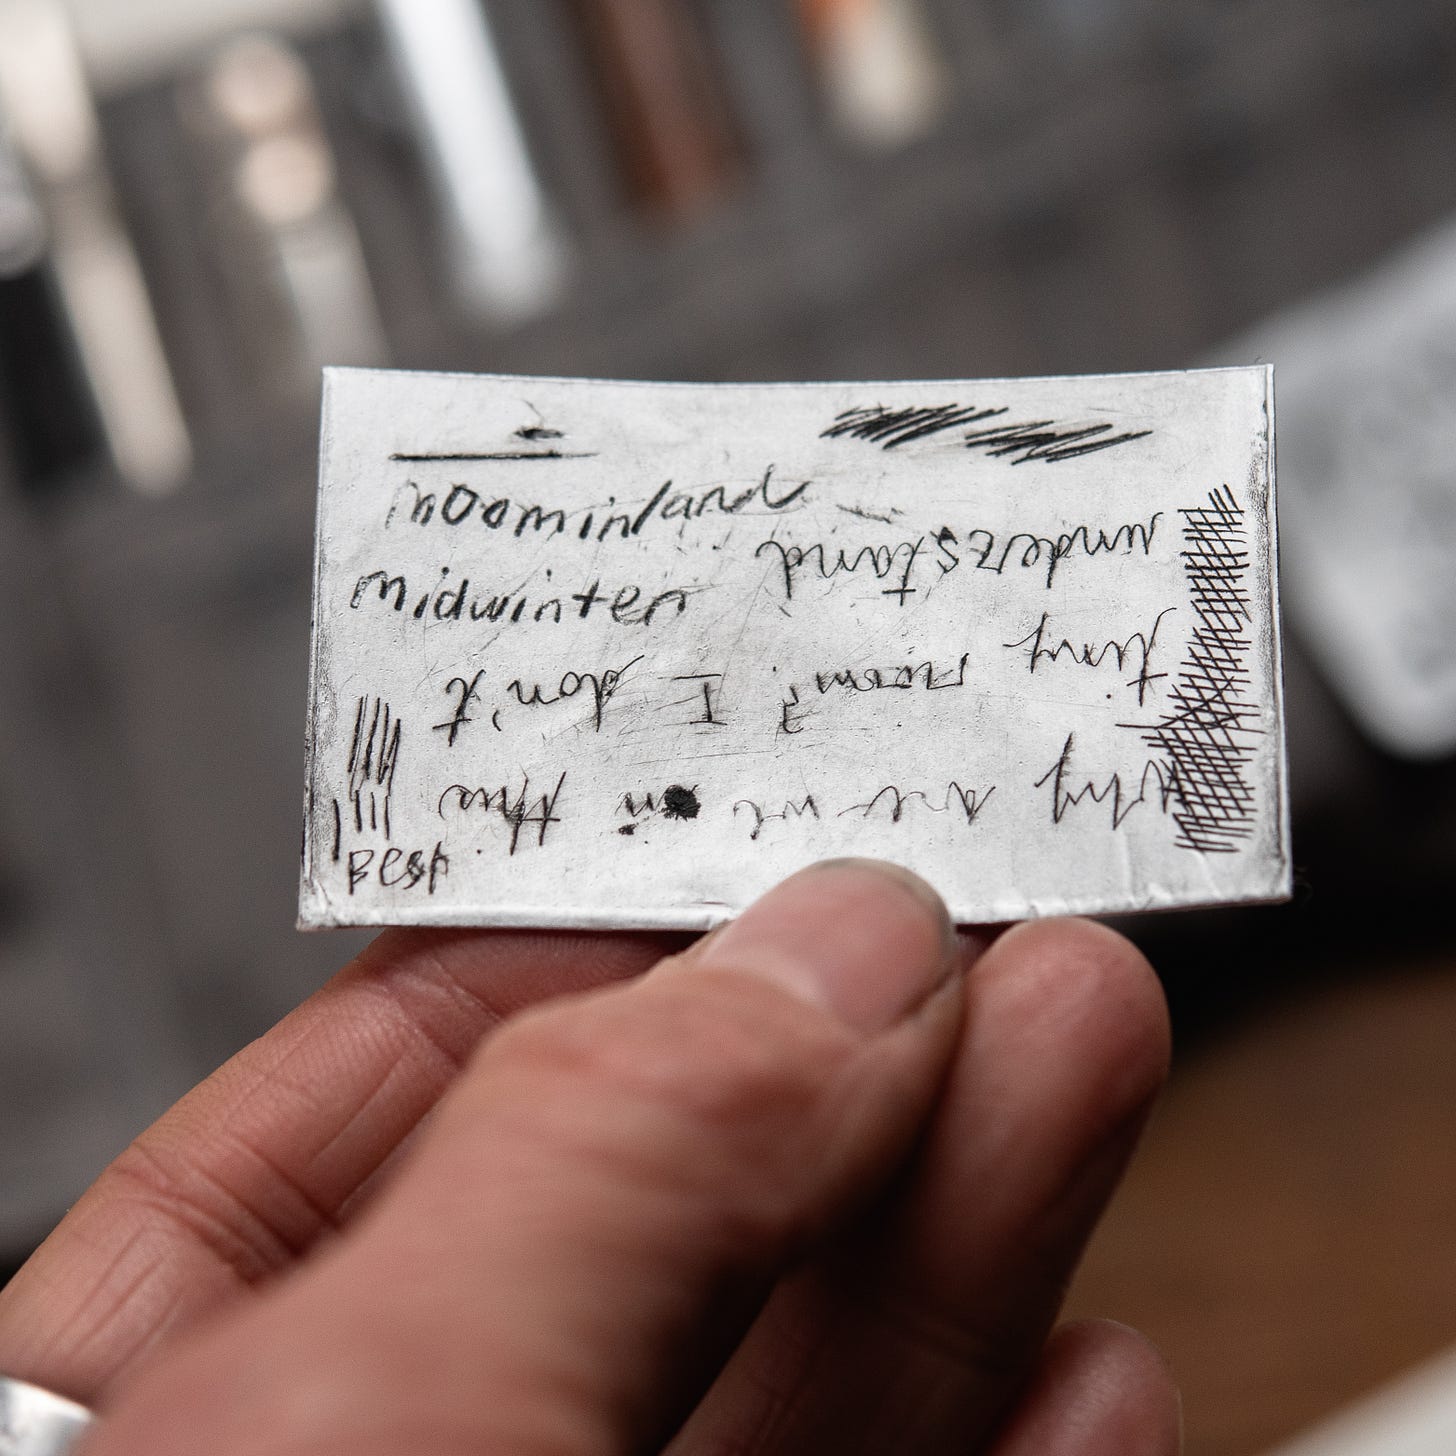 moominland
midwinter
Why are we in the
tiny room? I don't
understand
Best